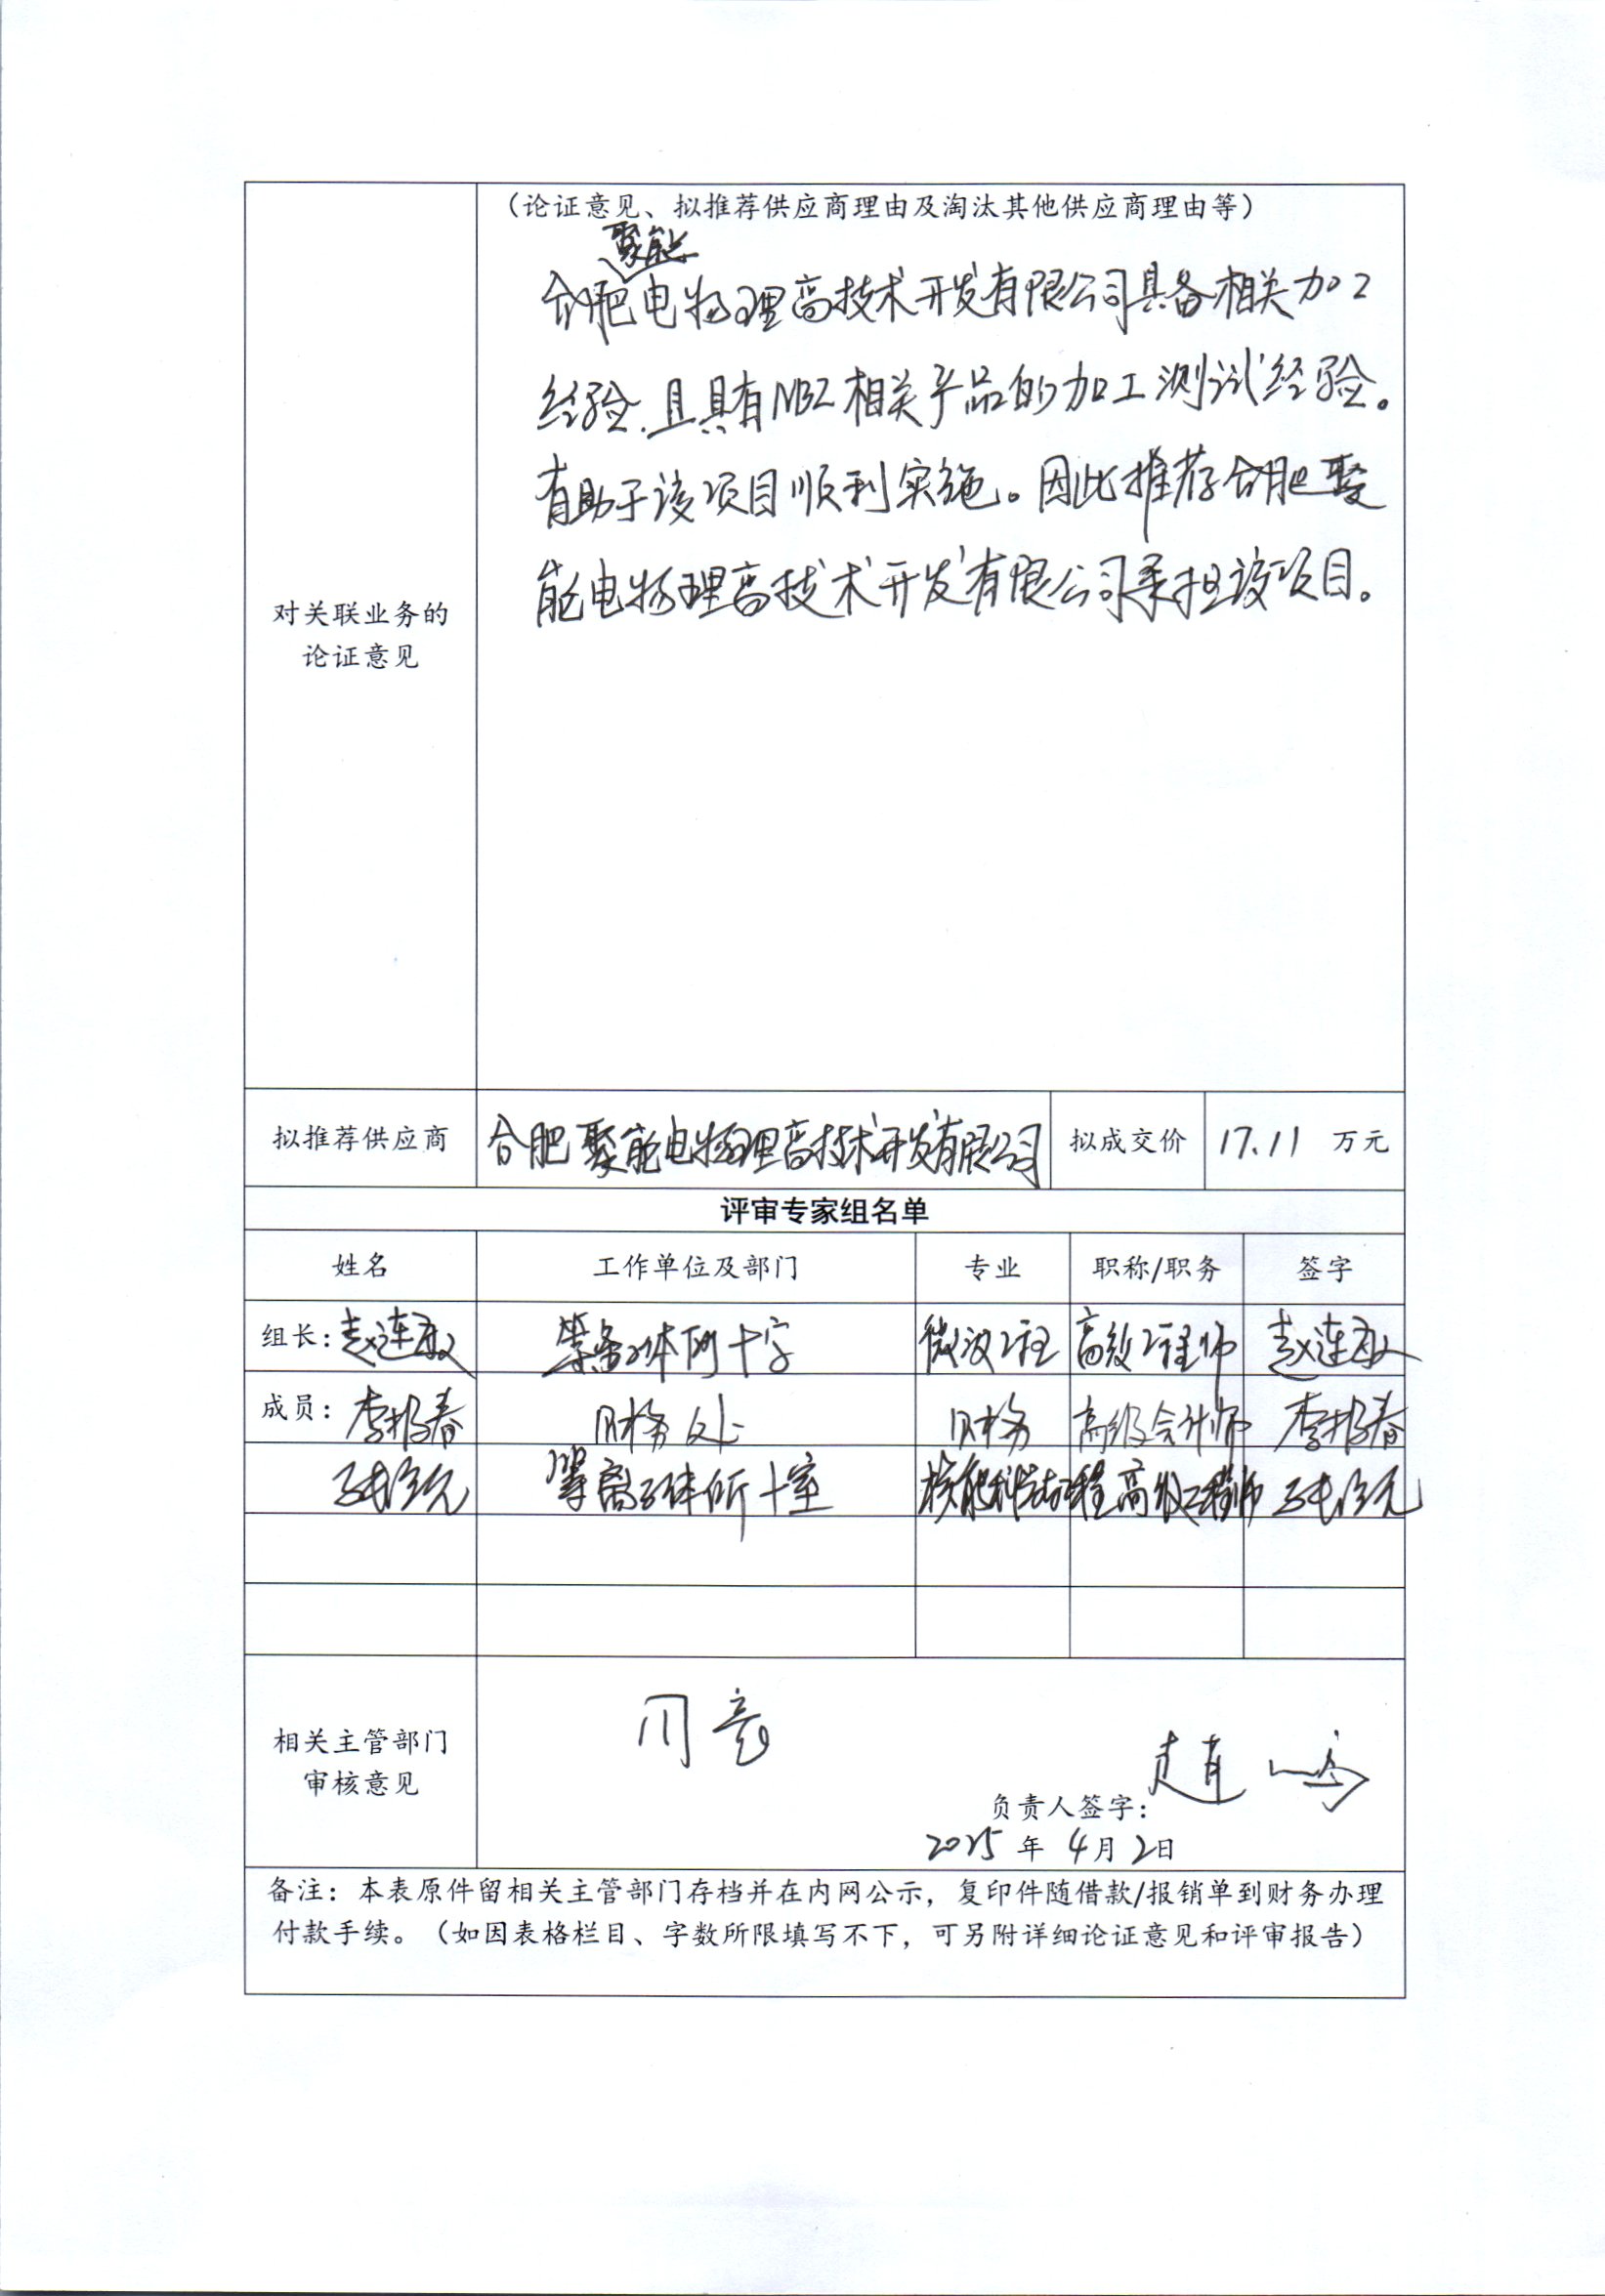 （论证意见、拟推荐供应商理由及淘汰其他供应商理由等）
聚能
合肥电物理高技术开发有限公司具备相关加工
经验，且具有NBI相关产品的加工测试经验。
有助于该项目顺利实施。因此推荐合肥聚
能电物理高技术开发有限公司承担该项目。
对关联业务的
论证意见
拟推荐供应商 合肥聚能电物理高技术开发有限公司 拟成交价 17.11 万元
评审专家组名单
姓名 工作单位及部门 专业 职称/职务 签字
组长：赵连敏 微波工程 高级工程师 赵连敏
成员：李报春 财务处 财务 高级会计师 李报春
等离子体所十室 核能科学与工程 高级工程师
相关主管部门
审核意见
同意
负责人签字：
2025 年 4 月 2 日
备注：本表原件留相关主管部门存档并在内网公示，复印件随借款/报销单到财务办理
付款手续。（如因表格栏目、字数所限填写不下，可另附详细论证意见和评审报告）